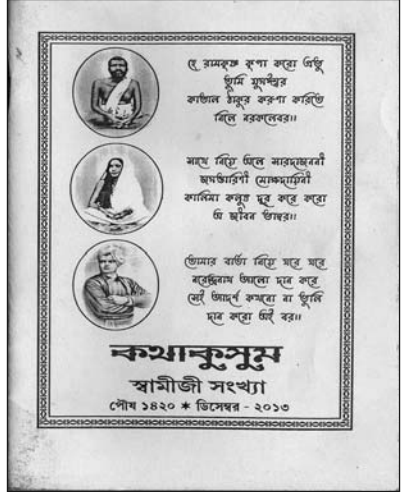 হে রামকৃষ্ণ কৃপা করো প্রভু
তুমি যুগঈশ্বর
কাঙাল ঠাকুর করুণা করিতে
নিলে নরকলেবর॥
সাথে নিয়ে এলে সারদাজননী
জগত্তারিণী মোক্ষদায়িনী
কালিমা কলুষ দূর করে করো
এ জীবন ভাস্বর॥
তোমার বার্তা নিয়ে ঘরে ঘরে
নরেন্দ্রনাথ আলো দান করে
সেই আদর্শ কখনো না ভুলি
দান করো এই বর॥
কথাকুসুম
স্বামীজী সংখ্যা
পৌষ ১৪২০ ✷ ডিসেম্বর - ২০১৩